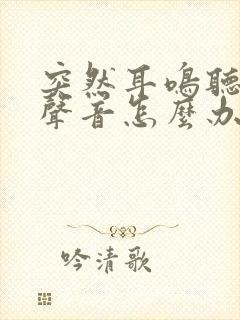 突然耳鳴聽
聲音怎麼办
吟清歌